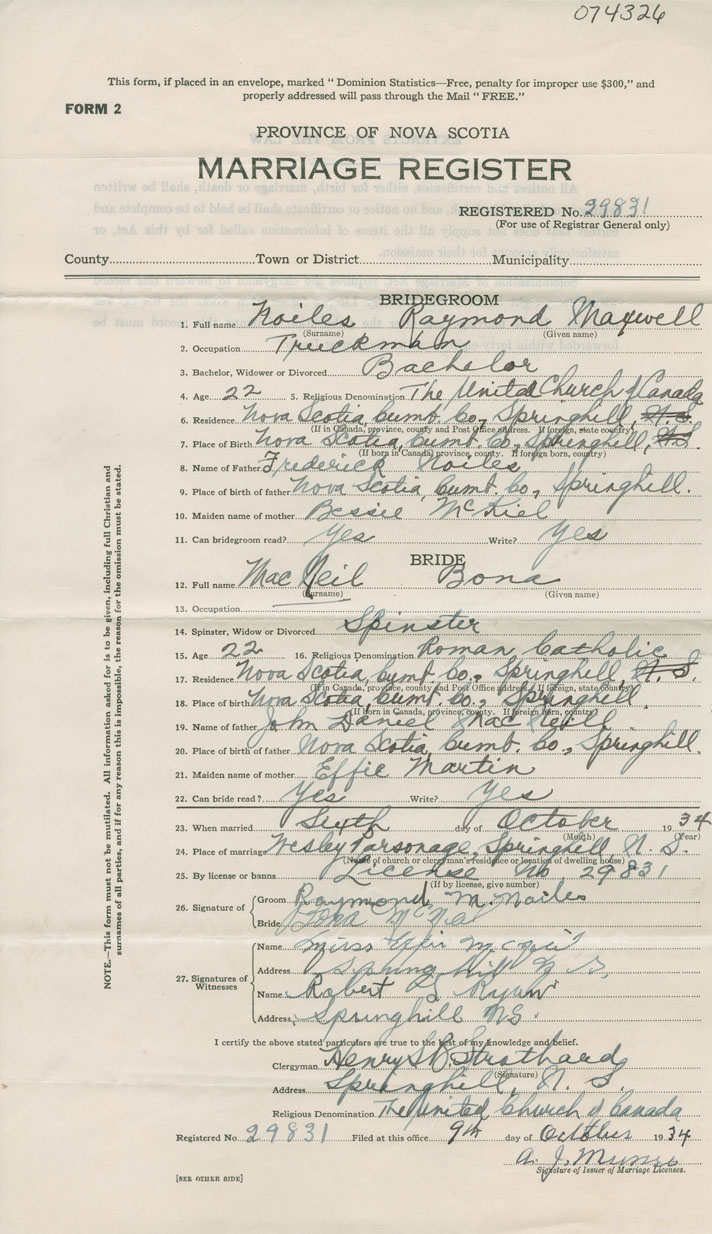 074326
This form, if placed in an envelope, marked " Dominion Statistics—Free, penalty for improper use $300," and
properly addressed will pass through the Mail " FREE."
FORM 2
PROVINCE OF NOVA SCOTIA
MARRIAGE REGISTER
REGISTERED No. 29831
(For use of Registrar General only)
County Town or District Municipality
BRIDEGROOM
1. Full name Noiles Raymond Maxwell
(Surname) (Given name)
2. Occupation Truckman
3. Bachelor, Widower or Divorced Bachelor
4. Age 22 5. Religious Denomination The United Church of Canada
6. Residence Nova Scotia, Cumb. Co., Springhill, N.S.
(If in Canada, province, county and Post Office address. If foreign, state country)
7. Place of Birth Nova Scotia, Cumb. Co., Springhill, N.S.
(If born in Canada, province, county. If foreign born, country)
8. Name of Father Frederick Noiles
9. Place of birth of father Nova Scotia, Cumb. Co., Springhill.
10. Maiden name of mother Bessie McKiel
11. Can bridegroom read? Yes Write? Yes
BRIDE
12. Full name MacNeil Bona
(Surname) (Given name)
13. Occupation
14. Spinster, Widow or Divorced Spinster
15. Age 22 16. Religious Denomination Roman Catholic
17. Residence Nova Scotia, Cumb. Co., Springhill, N.S.
(If in Canada, province, county and Post Office address. If foreign, state country)
18. Place of birth Nova Scotia, Cumb. Co., Springhill
(If born in Canada, province, county. If foreign born, country)
19. Name of father John Daniel MacNeil
20. Place of birth of father Nova Scotia, Cumb. Co., Springhill.
21. Maiden name of mother Effie Martin
22. Can bride read? Yes Write? Yes
23. When married Sixth day of October 1934
(Month) (Year)
24. Place of marriage Wesley Parsonage, Springhill, N. S.
(Name of church or clergyman's residence or location of dwelling house)
25. By license or banns License No 29831
(If by license, give number)
26. Signature of Groom Raymond M. Noiles
Bride Bona McNeil
27. Signatures of Witnesses
Name Miss
Address Spring hill N S,
Name Robert
Address Springhill NS.
I certify the above stated particulars are true to the best of my knowledge and belief.
Clergyman Henry S. B. Strothard
(Signature)
Address Springhill, N. S.
Religious Denomination The United Church of Canada
Registered No 29831 Filed at this office 9th day of October 1934
A. J. Munro
Signature of Issuer of Marriage Licenses.
[SEE OTHER SIDE]
NOTE.—This form must not be mutilated. All information asked for is to be given, including full Christian and
surnames of all parties, and if for any reason this is impossible, the reason for the omission must be stated.